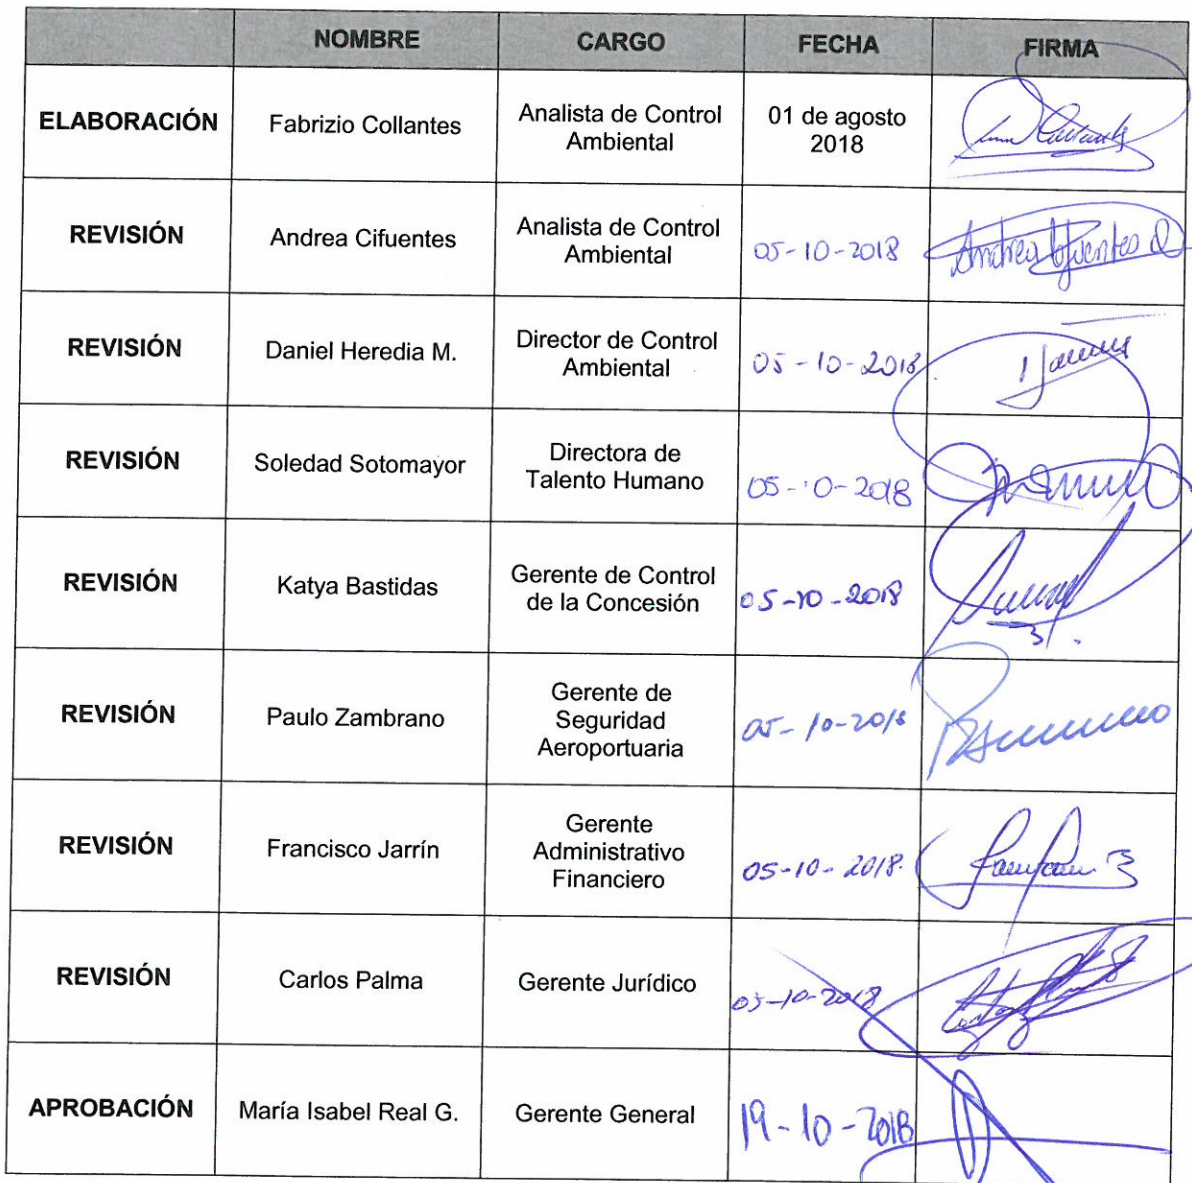 NOMBRE CARGO FECHA FIRMA
ELABORACIÓN Fabrizio Collantes Analista de Control Ambiental 01 de agosto 2018
REVISIÓN Andrea Cifuentes Analista de Control Ambiental 05-10-2018 Andrea Cifuentes
REVISIÓN Daniel Heredia M. Director de Control Ambiental 05-10-2018
REVISIÓN Soledad Sotomayor Directora de Talento Humano 05-10-2018
REVISIÓN Katya Bastidas Gerente de Control de la Concesión 05-10-2018
REVISIÓN Paulo Zambrano Gerente de Seguridad Aeroportuaria 05-10-2018
REVISIÓN Francisco Jarrín Gerente Administrativo Financiero 05-10-2018.
REVISIÓN Carlos Palma Gerente Jurídico 05-10-2018
APROBACIÓN María Isabel Real G. Gerente General 19-10-2018